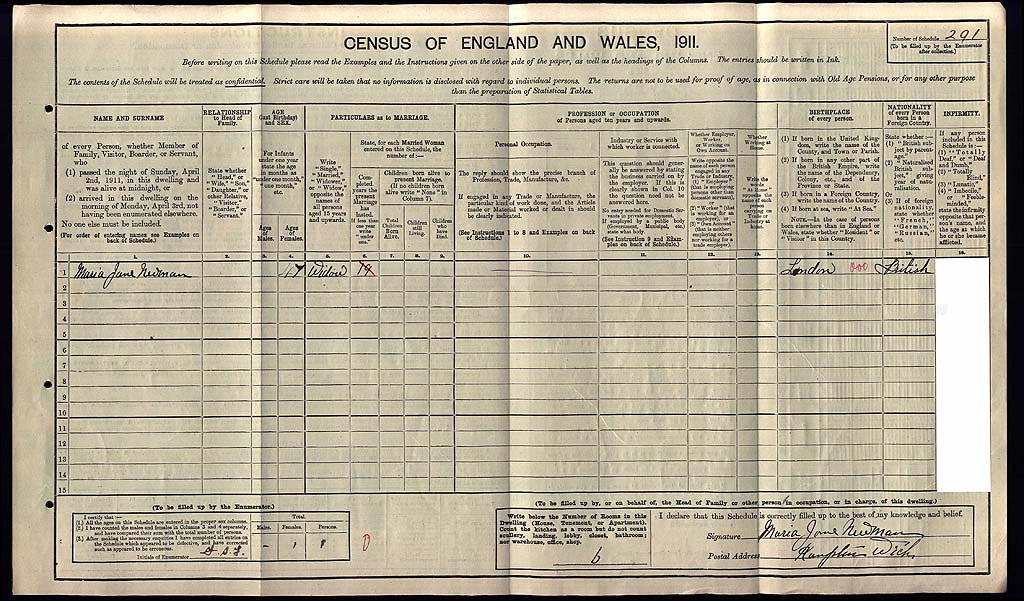 Number of Schedule 291
(To be filled up by the Enumerator
after collection.)
CENSUS OF ENGLAND AND WALES, 1911.
Before writing on this Schedule please read the Examples and the Instructions given on the other side of the paper, as well as the headings of the Columns. The entries should be written in Ink.
The contents of the Schedule will be treated as confidential. Strict care will be taken that no information is disclosed with regard to individual persons. The returns are not to be used for proof of age, as in connection with Old Age Pensions, or for any other purpose
than the preparation of Statistical Tables.
NAME AND SURNAME
of every Person, whether Member of
Family, Visitor, Boarder, or Servant,
who
(1) passed the night of Sunday, April
2nd, 1911, in this dwelling and
was alive at midnight, or
(2) arrived in this dwelling on the
morning of Monday, April 3rd, not
having been enumerated elsewhere.
No one else must be included.
(For order of entering names see Examples on
back of Schedule.)
RELATIONSHIP
to Head of
Family.
State whether
"Head," or
"Wife," "Son,"
"Daughter," or
other Relative,
"Visitor,"
"Boarder," or
"Servant."
AGE
(last Birthday)
and SEX.
For Infants
under one year
state the age
in months as
"under one month,"
"one month,"
etc.
Ages of Males.
Ages of Females.
PARTICULARS as to MARRIAGE.
Write
"Single,"
"Married,"
"Widower,"
or "Widow,"
opposite the
names of all
persons
aged 15 years
and upwards.
State, for each Married Woman
entered on this Schedule, the
number of :—
Completed
years the
present
Marriage
has
lasted.
If less than
one year
write
"under
one."
Children born alive to
present Marriage.
(If no children born
alive write "None" in
Column 7).
Total
Children
Born
Alive.
Children
still
Living.
Children
who
have
Died.
PROFESSION or OCCUPATION
of Persons aged ten years and upwards.
Personal Occupation.
The reply should show the precise branch of
Profession, Trade, Manufacture, &c.
If engaged in any Trade or Manufacture the
particular kind of work done, and the Article
made or Material worked or dealt in should
be clearly indicated.
(See Instructions 1 to 8 and Examples on back
of Schedule.)
Industry or Service with
which worker is connected.
This question should generally
be answered by stating
the business carried on by
the employer. If this is
clearly shown in Col. 10
the question need not be
answered here.
No entry needed for Domestic Servants
in private employment.
If employed by a public body
(Government, Municipal, etc.)
state what body.
(See Instruction 9 and Examples
on back of Schedule.)
Whether Employer,
Worker,
or Working on
Own Account.
Write opposite the
name of each person
engaged in any
Trade or Industry,
(1) "Employer"
(that is employing
persons other than
domestic servants),
or
(2) "Worker" (that
is working for an
employer), or
(3) "Own Account"
(that is neither
employing others
nor working for a
trade employer).
Whether
Working at
Home.
Write the
words
"At Home"
opposite the
name of each
person
carrying on
Trade or
Industry at
home.
BIRTHPLACE
of every person.
(1) If born in the United Kingdom,
write the name of the
County, and Town or Parish.
(2) If born in any other part of
the British Empire, write
the name of the Dependency,
Colony, etc., and of the
Province or State.
(3) If born in a Foreign Country,
write the name of the Country.
(4) If born at sea, write "At Sea."
NOTE.—In the case of persons
born elsewhere than in England or
Wales, state whether "Resident" or
"Visitor" in this Country.
NATIONALITY
of every Person
born in a
Foreign Country.
State whether :—
(1) "British
subject by
parentage."
(2) "Naturalised
British
subject," giving
year of
naturalisation.
Or
(3) If of foreign
nationality,
state whether
"French,"
"German,"
"Russian,"
etc.
INFIRMITY.
If any person
included in this
Schedule is :—
(1) "Totally
Deaf," or "Deaf
and Dumb,"
(2) "Totally
Blind,"
(3) "Lunatic,"
(4) "Imbecile,"
or "Feeble-minded,"
state the infirmity
opposite that person's
name, and
the age at which
he or she became
afflicted.
1. 2. 3. 4. 5. 6. 7. 8. 9. 10. 11. 12. 13. 14. 15. 16.
1 Maria Jane Newman 47 Widow 14 London 000 British
2
3
4
5
6
7
8
9
10
11
12
13
14
15
(To be filled up by the Enumerator.)
I certify that :—
(1.) All the ages on this Schedule are entered in the proper sex columns.
(2.) I have counted the males and females in Columns 3 and 4 separately,
and have compared their sum with the total number of persons.
(3.) After making the necessary enquiries I have completed all entries on
the Schedule which appeared to be defective, and have corrected
such as appeared to be erroneous.
Initials of Enumerator
Total.
Males. Females. Persons.
– 1 1
0
(To be filled up by, or on behalf of, the Head of Family or other person in occupation, or in charge, of this dwelling.)
Write below the Number of Rooms in this
Dwelling (House, Tenement, or Apartment).
Count the kitchen as a room but do not count
scullery, landing, lobby, closet, bathroom;
nor warehouse, office, shop.
6
I declare that this Schedule is correctly filled up to the best of my knowledge and belief.
Signature Maria Jane Newman
Postal Address Hampton Wick